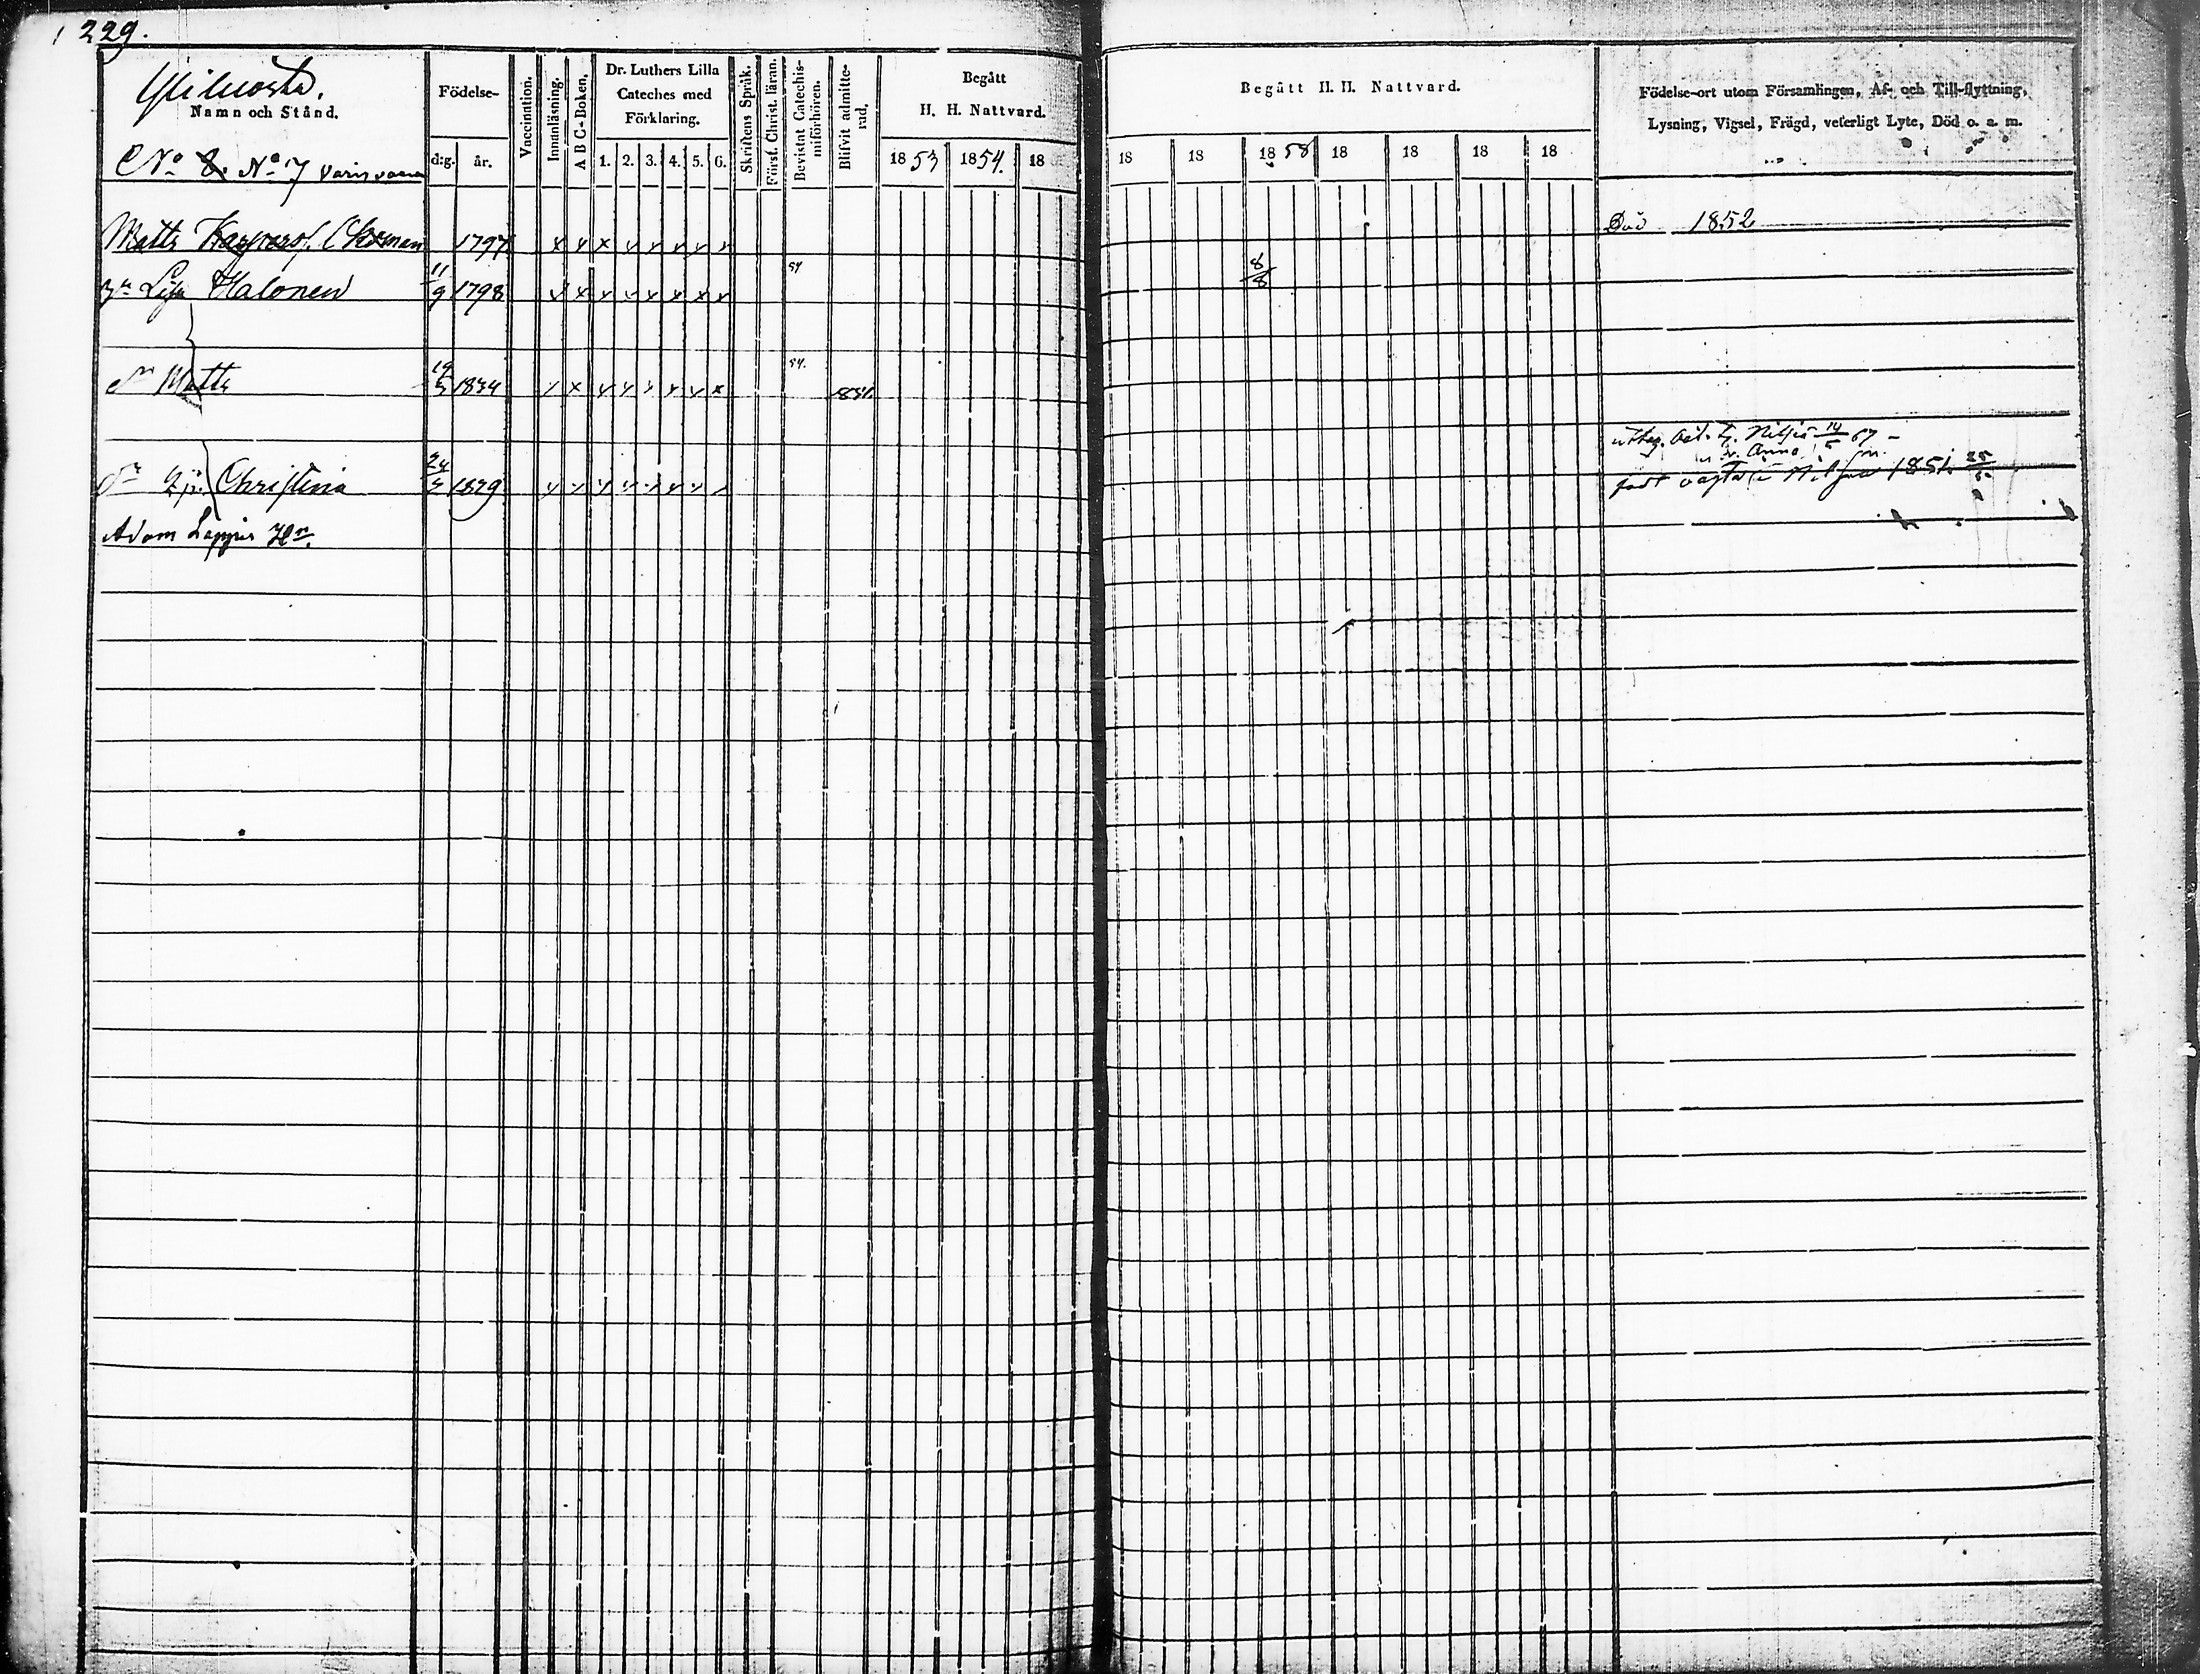 229.
Namn och Stånd.
No 8. No 7 Varisvaara
Födelse-
d:g. år.
Vaccination.
Innanläsning.
A B C-Boken.
Dr. Luthers Lilla
Cateches med
Förklaring.
1. 2. 3. 4. 5. 6.
Skriftens Språk.
Först. Christ. läran.
Bevistat Catechis-
miförhören.
Blifvit admitte-
rad.
Begått
H. H. Nattvard.
1853 1854. 18
Begått H. H. Nattvard.
18 18 1858 18 18 18 18
Födelse-ort utom Församlingen, Af- och Till-flyttning,
Lysning, Vigsel, Frägd, veterligt Lyte, Död o. s. m.
Matts 1797 x x x x x x x x Död 1852
Lisa Halonen 11/9 1798 x x x x x x x x 54 8/8
Matts 19/5 1834 x x x x x x x x 54. 854.
Christina 24/7 1829 x x x x x x x x
Nilsiä 14/5 67
Anna
1851
Adam